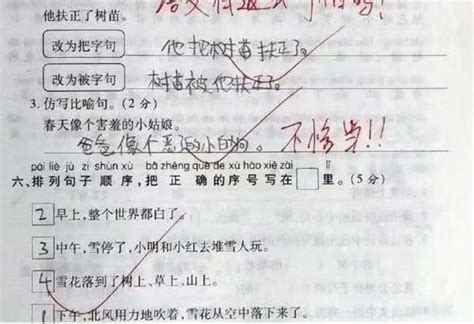 他扶正了树苗。
改为把字句 他把树苗扶正了。
改为被字句 树苗被他扶正了。
3. 仿写比喻句。(2 分)
春天像个害羞的小姑娘。
爸爸像个害羞的小白狗。 不恰当!!
pái liè jù zi shùn xù bǎ zhèng què de xù hào xiě zài lǐ
六、排列句子 顺序,把 正 确的序号写在 里。(5 分)
2 早上,整个世界都白了。
3 中午,雪停了,小明和小红去堆雪人玩。
4 雪花落到了树上、草上、山上。
1 下午,北风用力地吹着,雪花从空中落下来了。